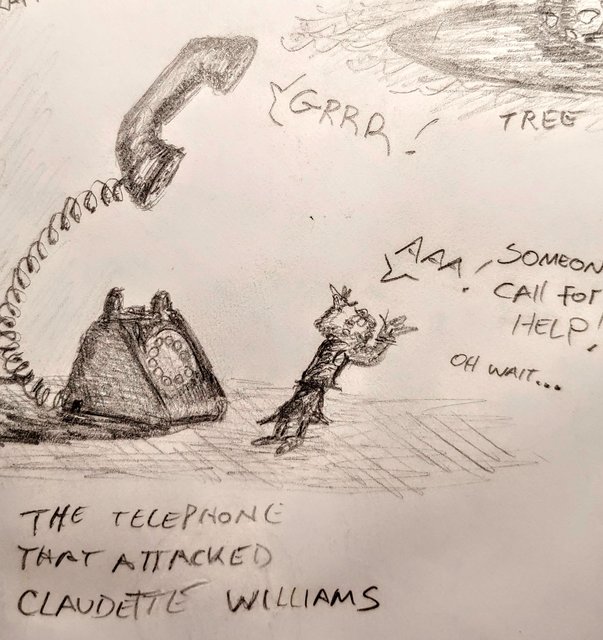 GRRR!
TREE
AAA!
SOMEON
CAll FOr
HELP!
OH WAIT...
THE TELEPHONE
THAT ATTACKED
CLAUDETTE WILLIAMS